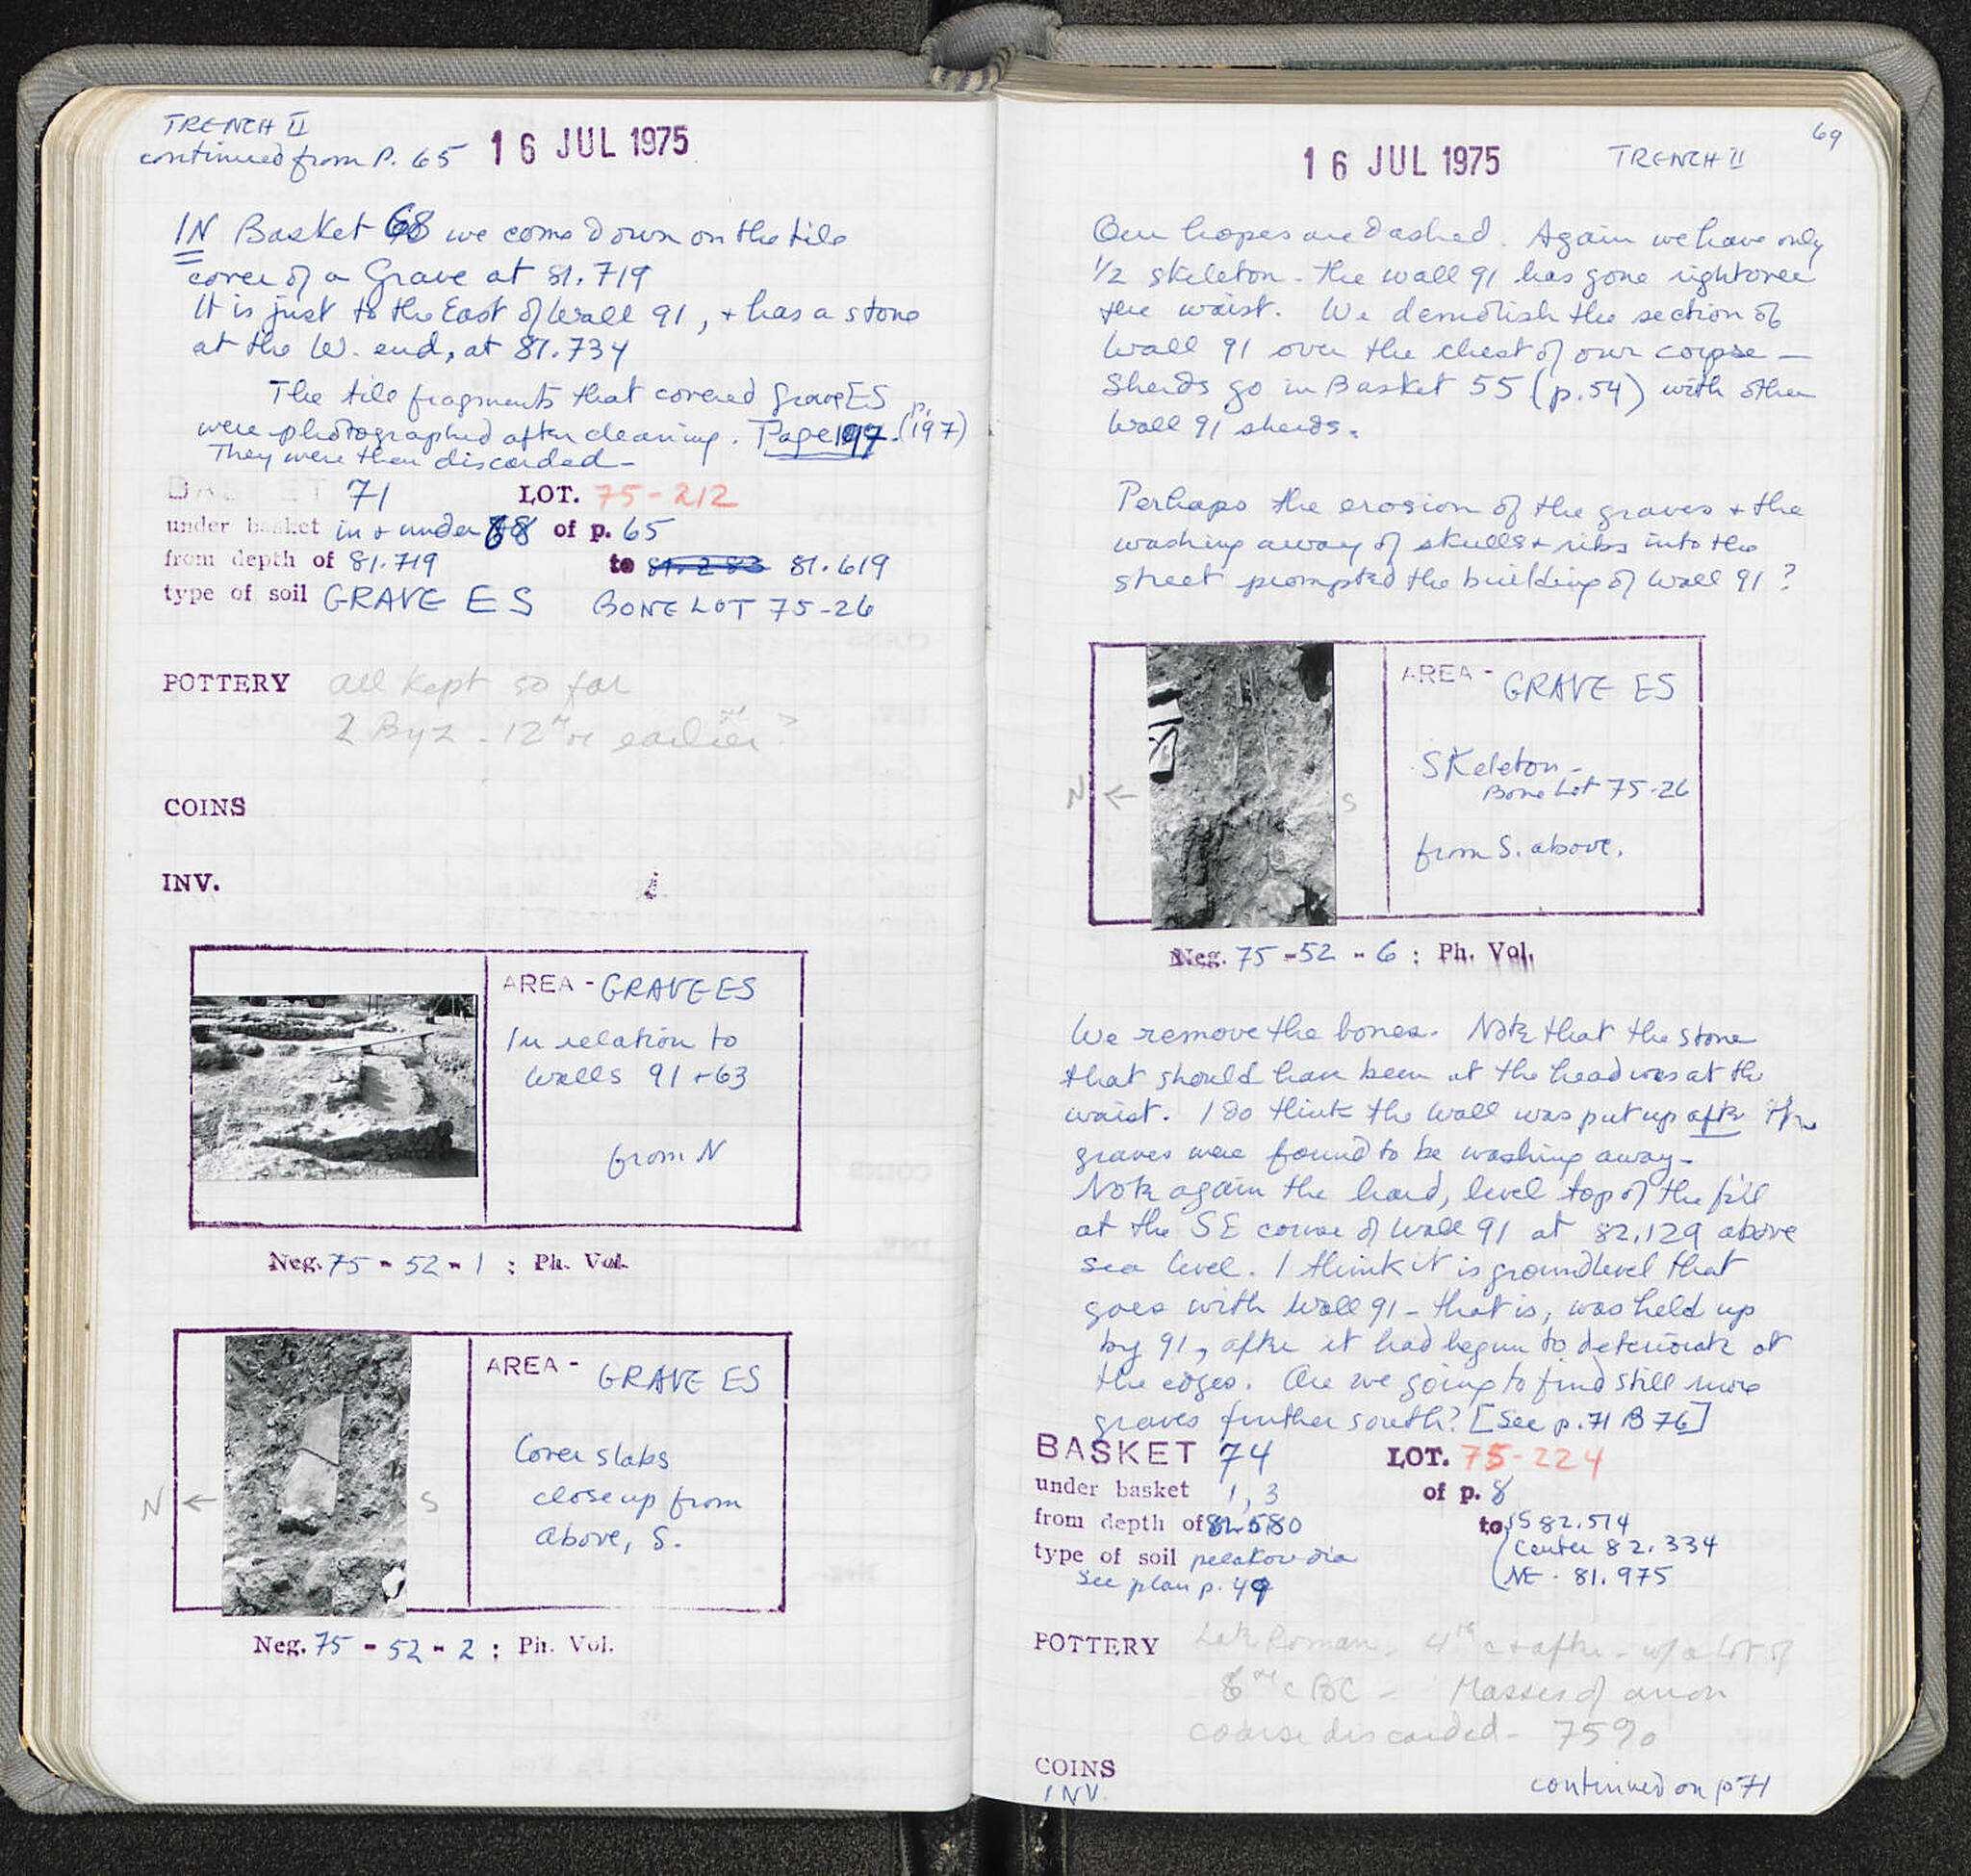 TRENCH II
continued from P. 65
16 JUL 1975
IN Basket 68 we come down on the tile
cover of a Grave at 81.719
It is just to the East of Wall 91, + has a stone
at the W. end, at 81.734
The tile fragments that covered Grave ES
were photographed after cleaning. Page 197. (p. 197)
They were then discarded -
BASKET 71 LOT. 75-212
under basket in + under 68 of p. 65
from depth of 81.719 to 81.619
type of soil GRAVE ES BONE LOT 75-26
POTTERY all kept so far
2 Byz - 12th or earlier ?
COINS
INV.
AREA - GRAVE ES
In relation to
Walls 91 + 63
from N
Neg. 75 - 52 - 1 : Ph. Vol.
AREA - GRAVE ES
Cover slabs
close up from
above, S.
N ← S
Neg. 75 - 52 - 2 : Ph. Vol.
69
16 JUL 1975 TRENCH II
Our hopes are dashed. Again we have only
1/2 skeleton - the wall 91 has gone right over
the waist. We demolish the section of
Wall 91 over the chest of our corpse -
Sherds go in Basket 55 (p. 54) with other
Wall 91 sherds.
Perhaps the erosion of the graves + the
washing away of skulls + ribs into the
street prompted the building of Wall 91?
AREA - GRAVE ES
Skeleton -
Bone Lot 75-26
from S. above.
N ← S
Neg. 75 - 52 - 6 : Ph. Vol.
We remove the bones. Note that the stone
that should have been at the head was at the
waist. I do think the wall was put up after the
graves were found to be washing away -
Note again the hard, level top of the fill
at the SE course of Wall 91 at 82.129 above
sea level. I think it is ground level that
goes with Wall 91 - that is, was held up
by 91, after it had begun to deteriorate at
the edges. Are we going to find still more
graves further south? [See p. 71 B 76]
BASKET 74 LOT. 75-224
under basket 1, 3 of p. 8
from depth of 82.580 to S 82.514
Center 82.334
NE - 81.975
type of soil pelekoudia
See plan p. 49
POTTERY Late Roman, 4th c + after - w/ a lot of
6th c BC - Masses of
coarse discarded - 75%
COINS
INV.
continued on p 71